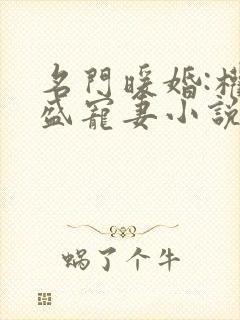 名門暖婚:權
盛寵妻小說
蝸了个牛